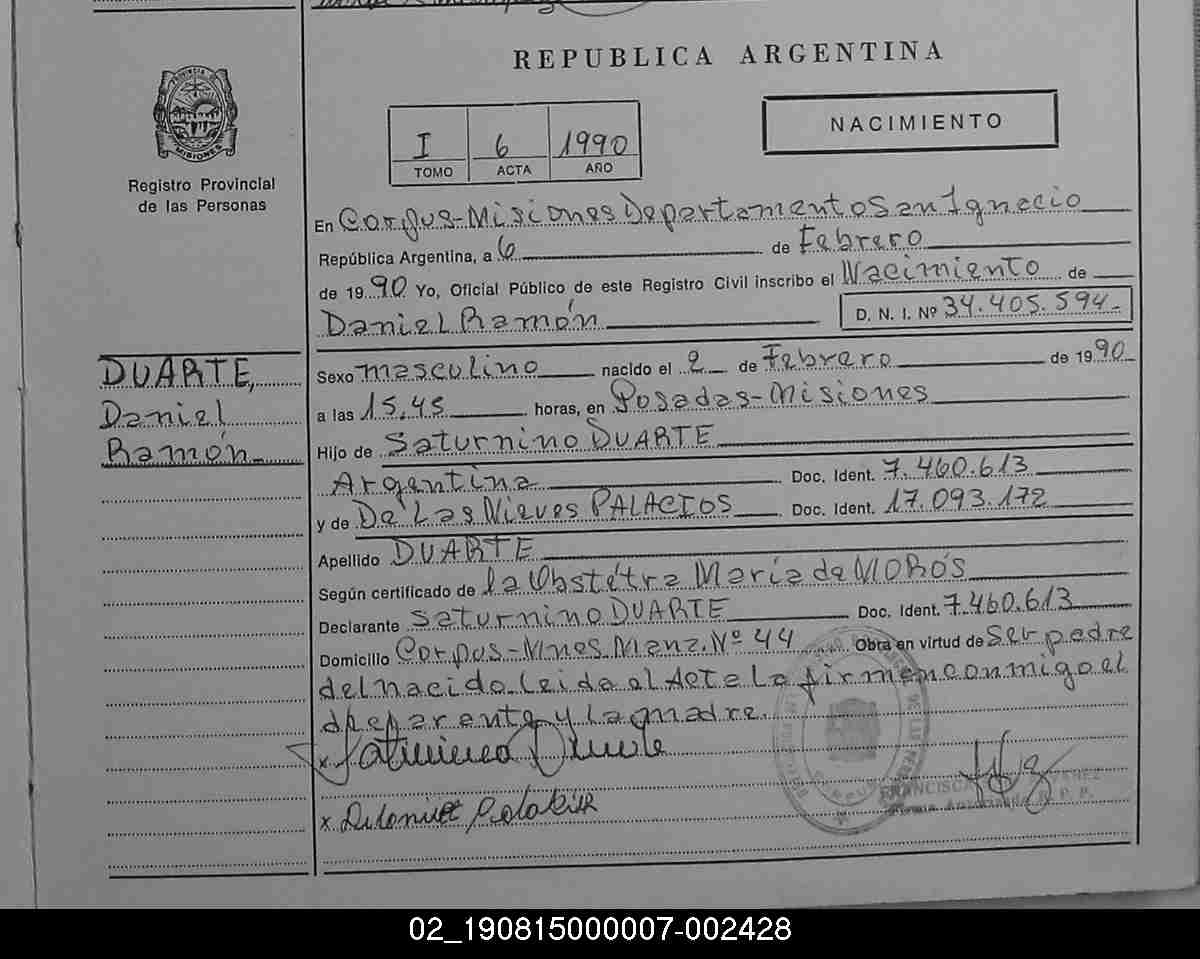 REPUBLICA ARGENTINA
PROVINCIA DE MISIONES
Registro Provincial
de las Personas
I 6 1990
TOMO ACTA AÑO
NACIMIENTO
En Corpus-Misiones Departamento San Ignacio
República Argentina, a 6 de Febrero
de 19 90 Yo, Oficial Público de este Registro Civil inscribo el Nacimiento de
Daniel Ramón D. N. I. Nº 34.405.594-
DUARTE,
Daniel
Ramón
Sexo masculino nacido el 2 de Febrero de 19 90
a las 15,45 horas, en Posadas-Misiones
Hijo de Saturnino DUARTE
Argentina Doc. Ident. 7.460.613
y de De Las Nieves PALACIOS Doc. Ident. 17.093.172
Apellido DUARTE
Según certificado de la Obstétra María de MOROS
Declarante Saturnino DUARTE Doc. Ident. 7.460.613
Domicilio Corpus-Mnes Manz. Nº 44 Obra en virtud de Ser padre
del nacido. Leida el Acta la firman conmigo el
y la madre.
Saturnino Duarte
x
FRANCISCA
R. P. P.
02_190815000007-002428